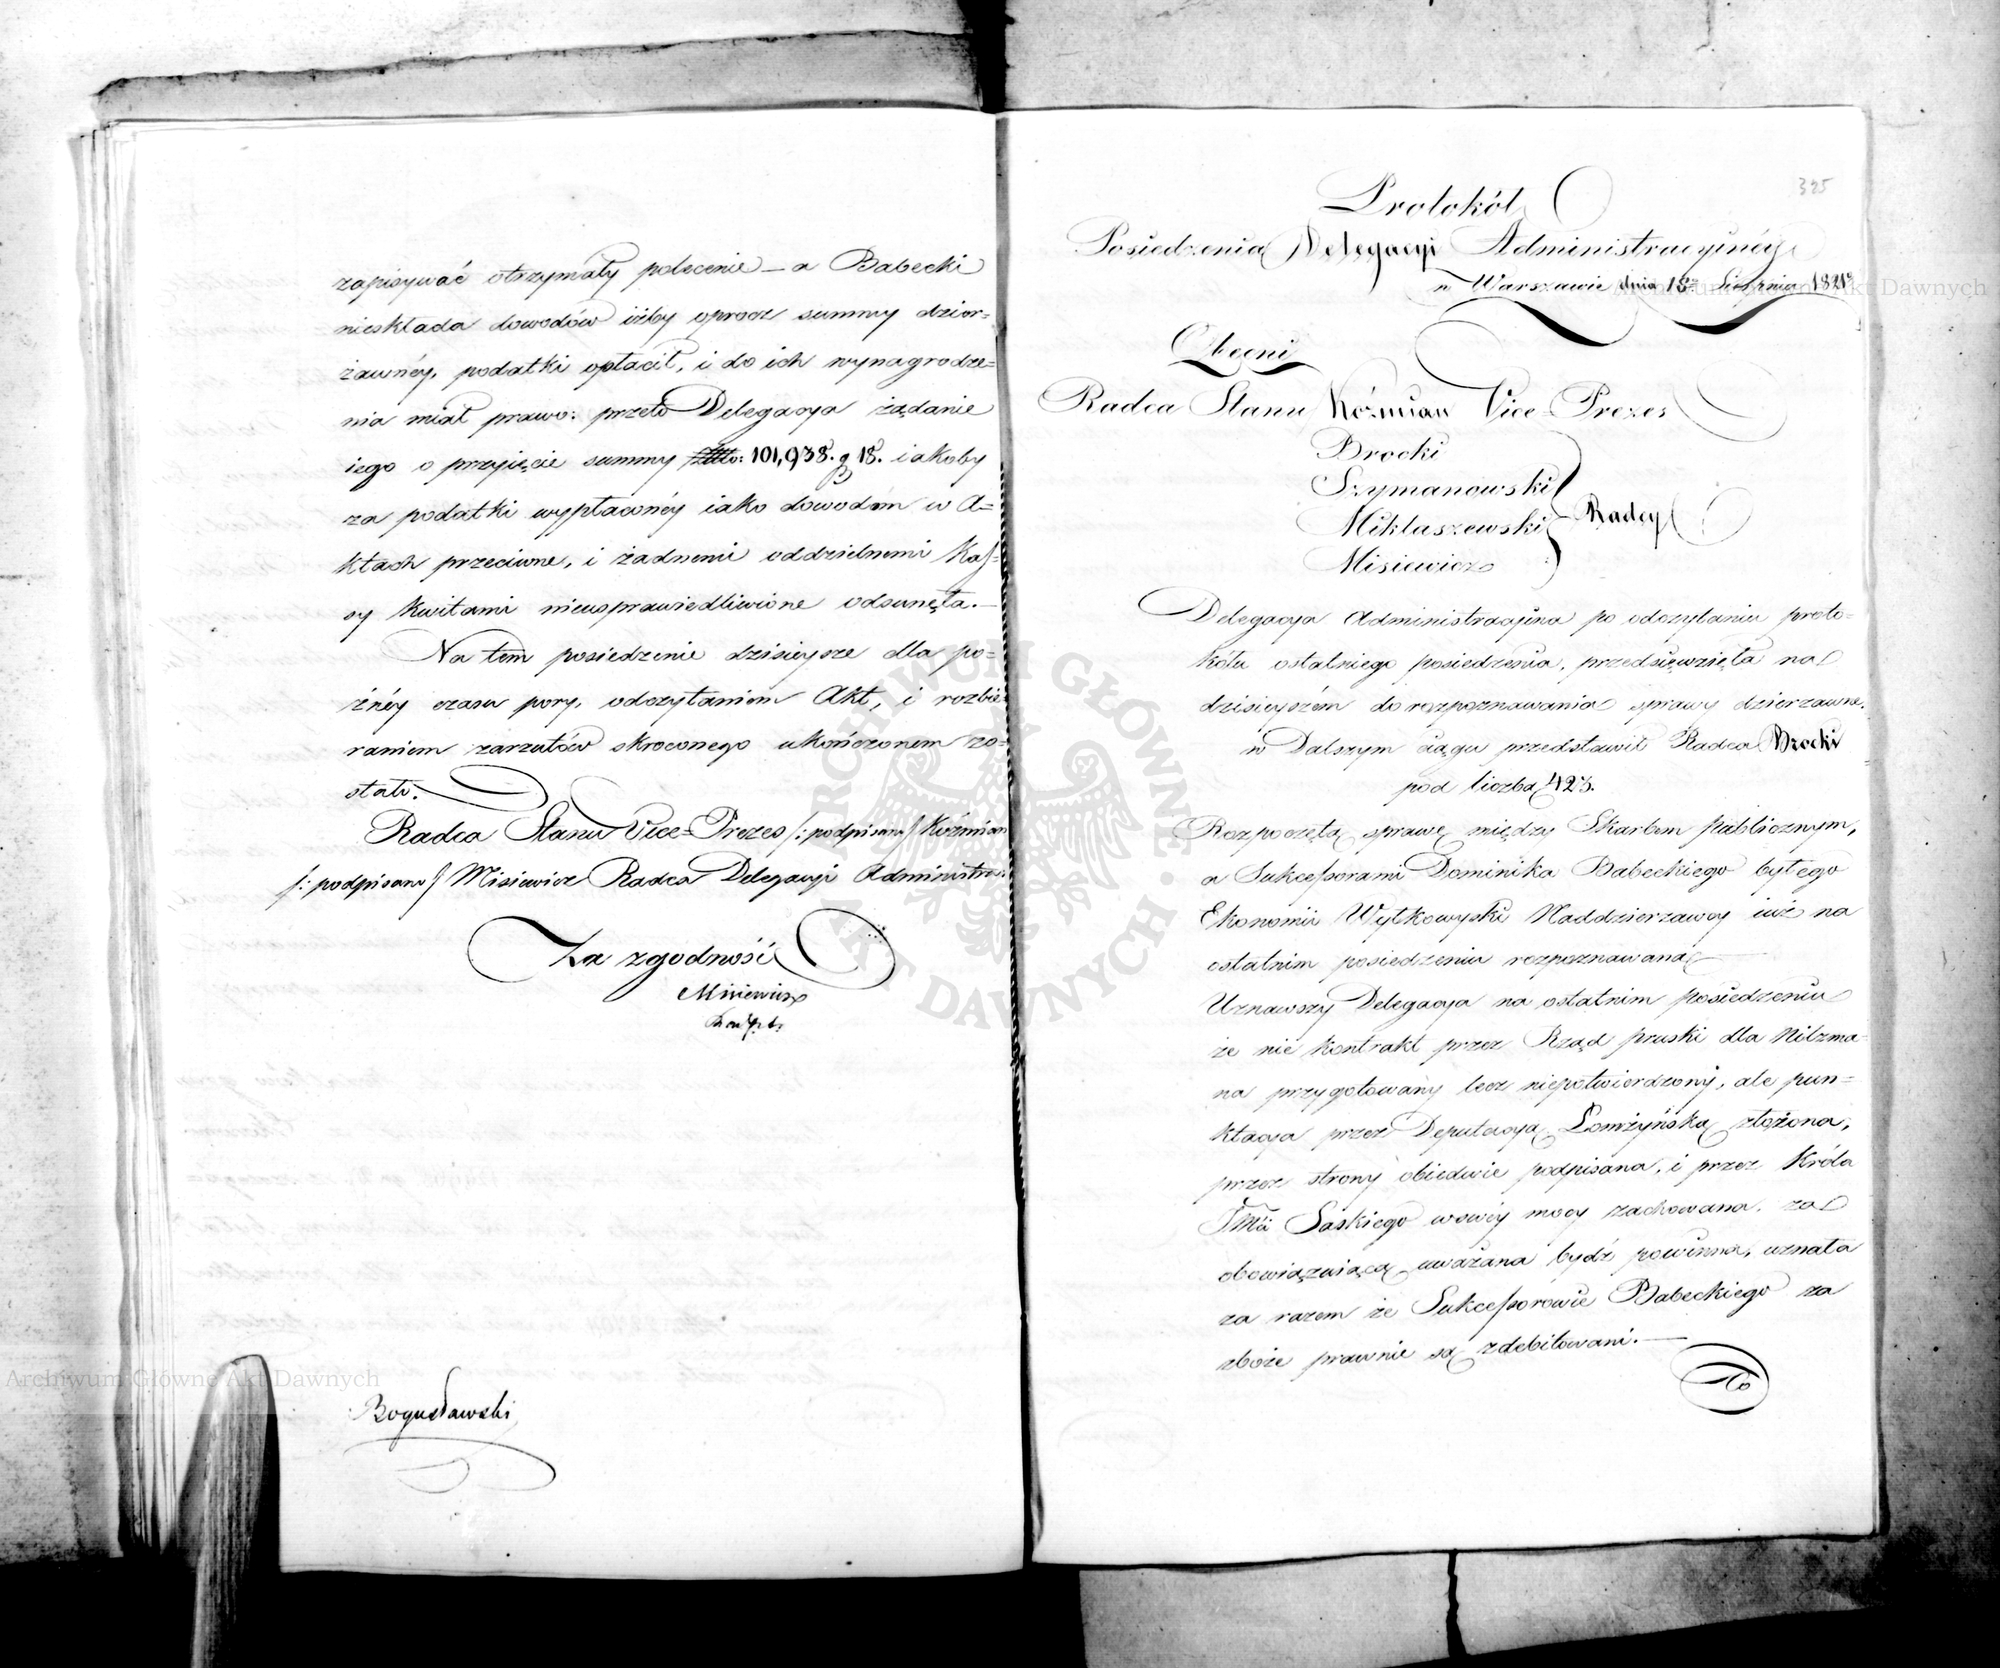 zapisywać otrzymały polecenie – a Babecki
nieskłada dowodów iżby oprocz summy dzier=
żawnéy, podatki opłacił, i do ich wynagrodze=
nia miał prawo: przeto Delegacya żądanie
iego o przyięcie summy 101,938. g 18. iakoby
za podatki wypłaconéy iako dowodom w A=
ktach przeciwne, i żadnemi oddzielnemi Kas=
sy kwitami nieusprawiedliwione odsunęła. –
Na tem posiedzenie dzisieysze dla po=
źnéy czasu pory, odczytaniem Akt, i rozbie=
raniem zarzutów skroconego ukończonem zo=
stało.
Radca Stanu Vice=Prezes /: podpisano/ Koźmian
/: podpisano/ Misiewicz Radca Delegacyi Administra.
Za zgodność
Misiewicz
Bogusławski
325
Protokół
Posiedzenia Delegacyi Administracyinéy
w Warszawie dnia 18 Sierpnia 1821
Obecni
Radca Stanu Koźmian Vice=Prezes
Brocki
Szymanowski
Miklaszewski
Misiewicz
Radcy
Delegacya Administracyina po odczytaniu proto=
kółu ostatniego posiedzenia, przedsięwzięła na
dzisieyszém do rozpoznawania sprawy dzierzawne.
w Dalszym ciągu przedstawił Radca Brocki
pod liczbą 423.
Rozpoczętą sprawę między Skarbem publicznym,
a Sukcessorami Dominika Babeckiego byłego
Ekonomii Wytkowyski Naddzierzawcy iuż na
ostatnim posiedzeniu rozpoznawaną –
Uznawszy Delegacya na ostatnim posiedzeniu
że nie kontrakt przez Rząd pruski dla Nilzma=
na przygotowany lecz niepotwierdzony, ale pun=
ktacya przez Deputacyą Łomżyńską złożona,
przez strony obiedwie podpisana, i przez Króla
JMci Saskiego wswéy mocy zachowana, za
obowiązuiącą uważana bydź powinna, uznała
za razem że Sukcessorowie Babeckiego za
zboże prawnie są zdebitowani. –
Archiwum Główne Akt Dawnych
Archiwum Główne Akt Dawnych
ARCHIWUM GŁÓWNE
AKT DAWNYCH